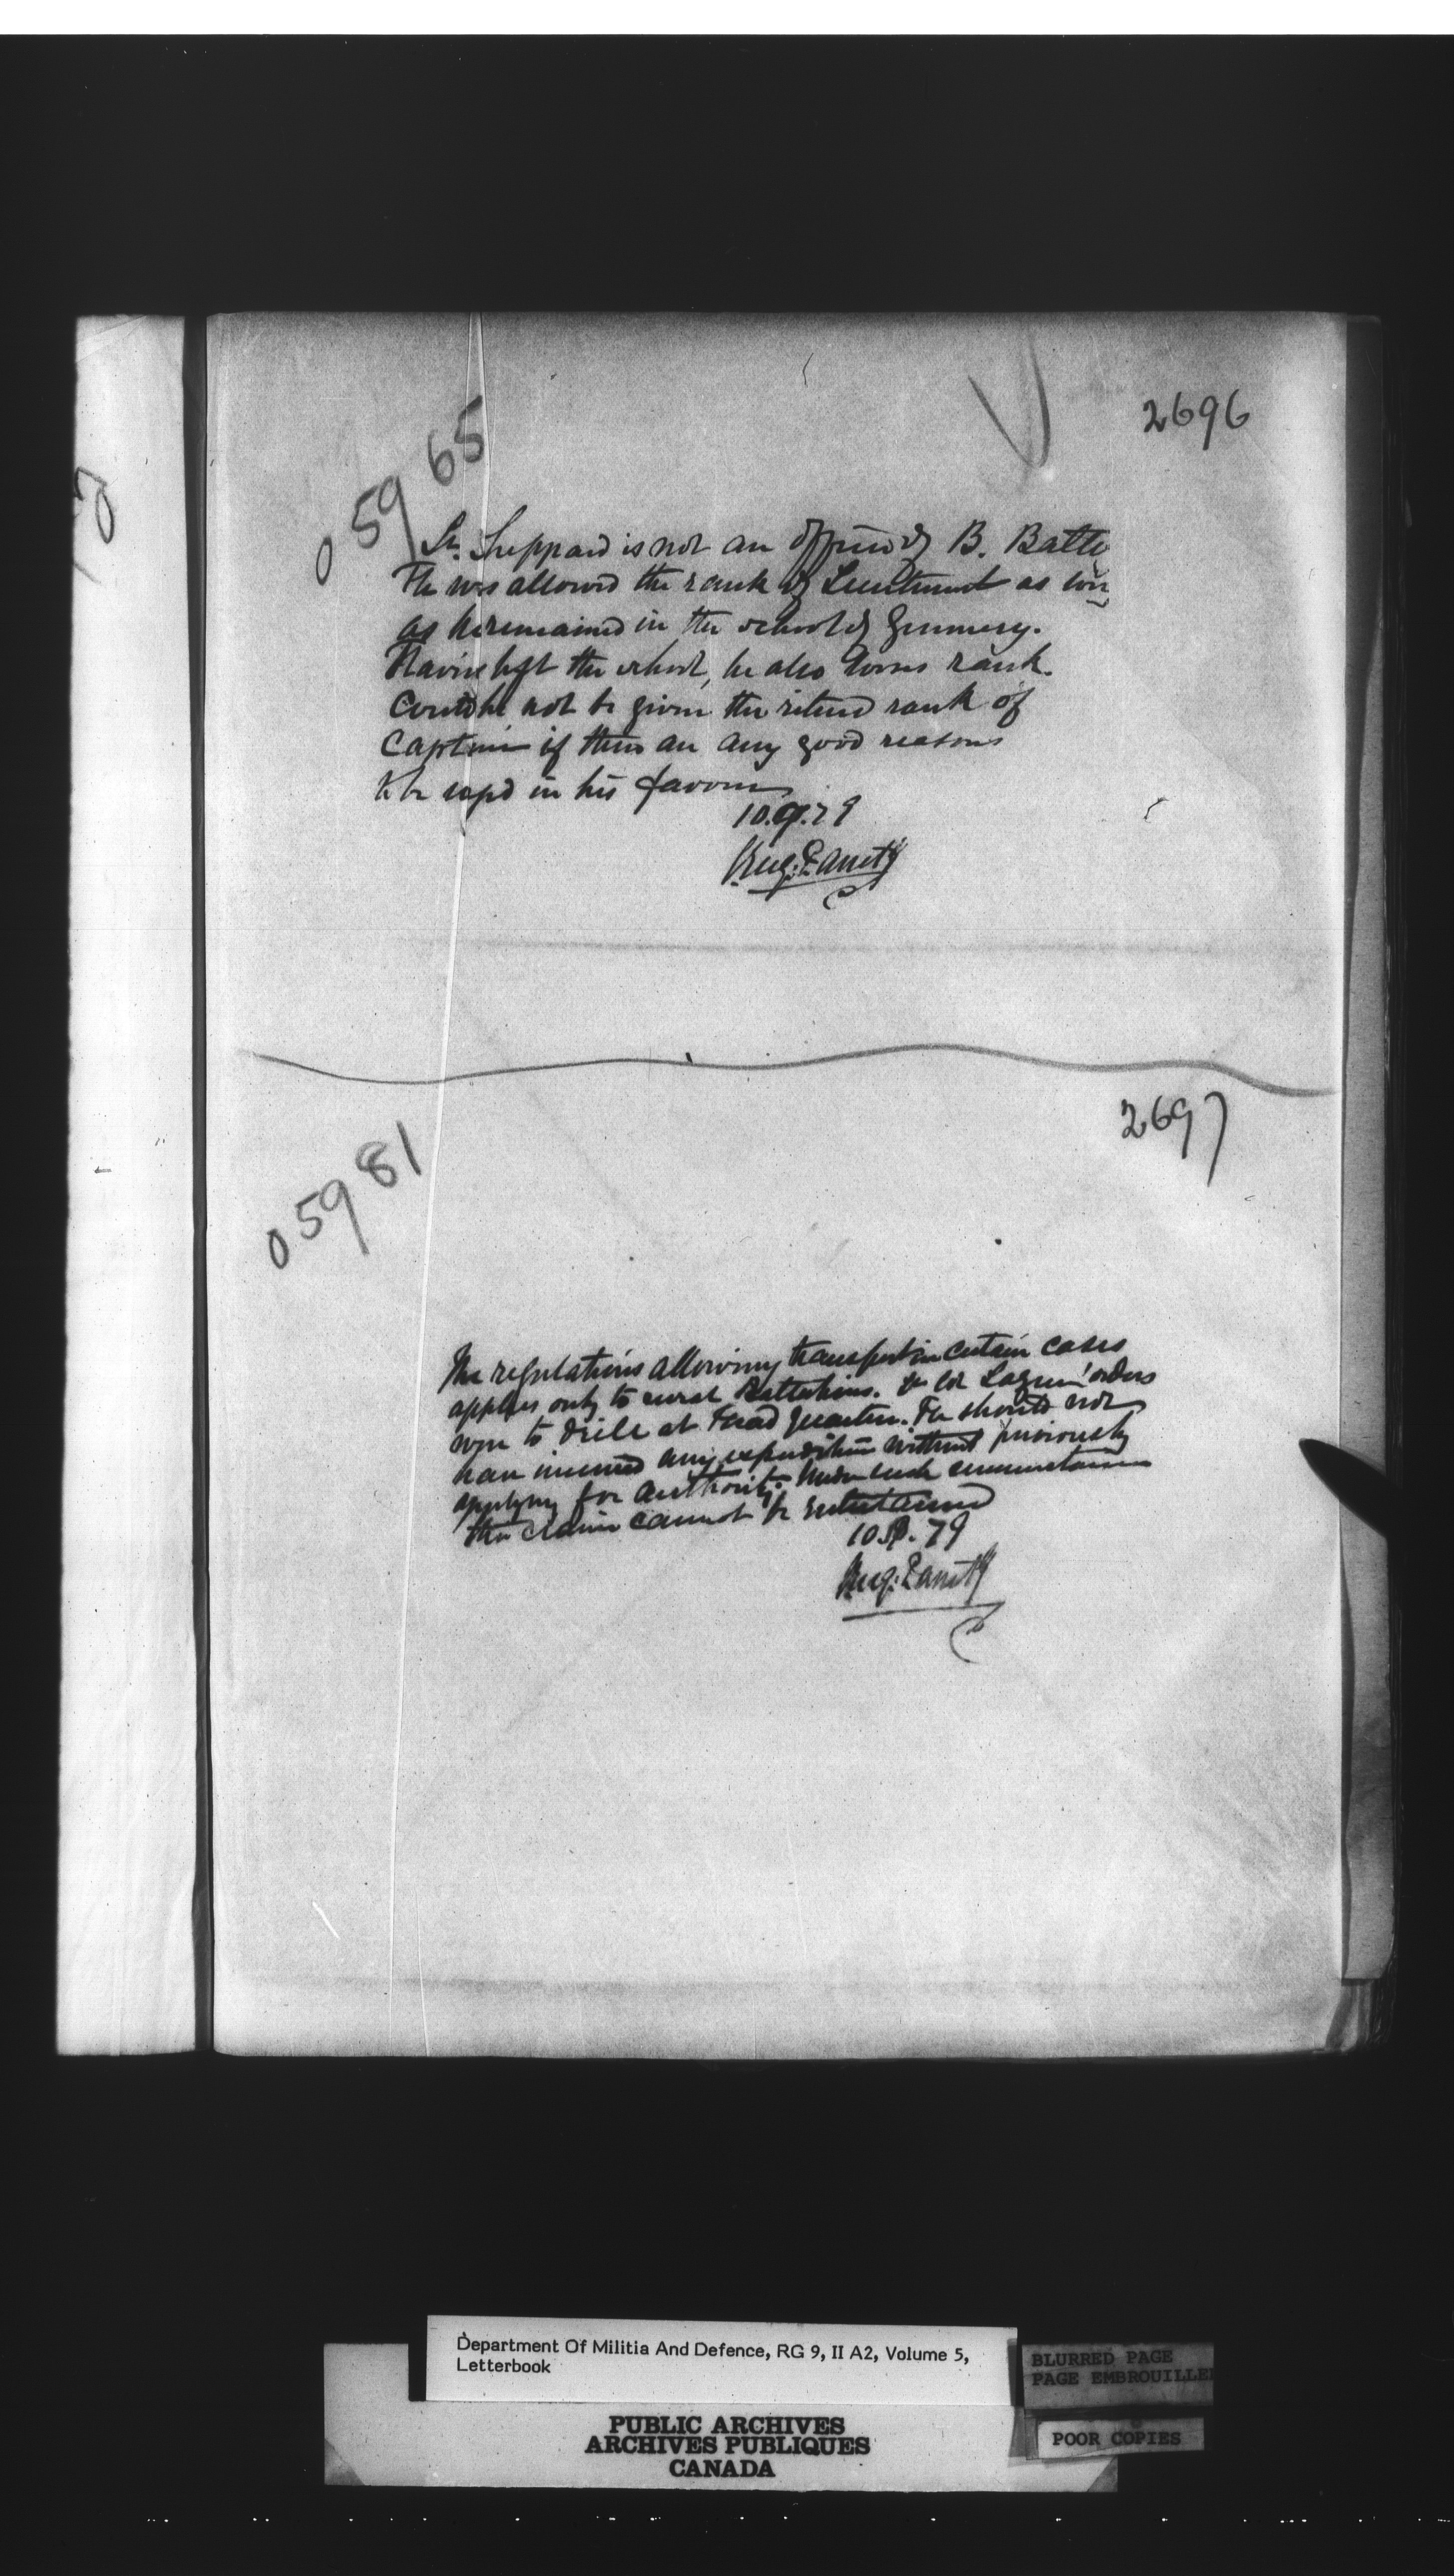 2696
05965
Lt. Sheppard is not an officer of B. Batty
He was allowed the rank of Lieutenant as long
as he remained in the school of Gunnery.
Having left the school, he also looses rank.
Could he not be given the retired rank of
Captain if there are any good reasons
to be in his favour
10. 9. 79
2697
05981
The regulations allowing transport in certain cases
applies only to rural Battalions. Lt Col orders
were to drill at Head Quarters. He should not
have incurred any expenditure without previously
applying for authority. Under such circumstances
the claim cannot be entertained
10 S. 79
Department Of Militia And Defence, RG 9, II A2, Volume 5,
Letterbook
BLURRED PAGE
PAGE EMBROUILLE
POOR COPIES
PUBLIC ARCHIVES
ARCHIVES PUBLIQUES
CANADA